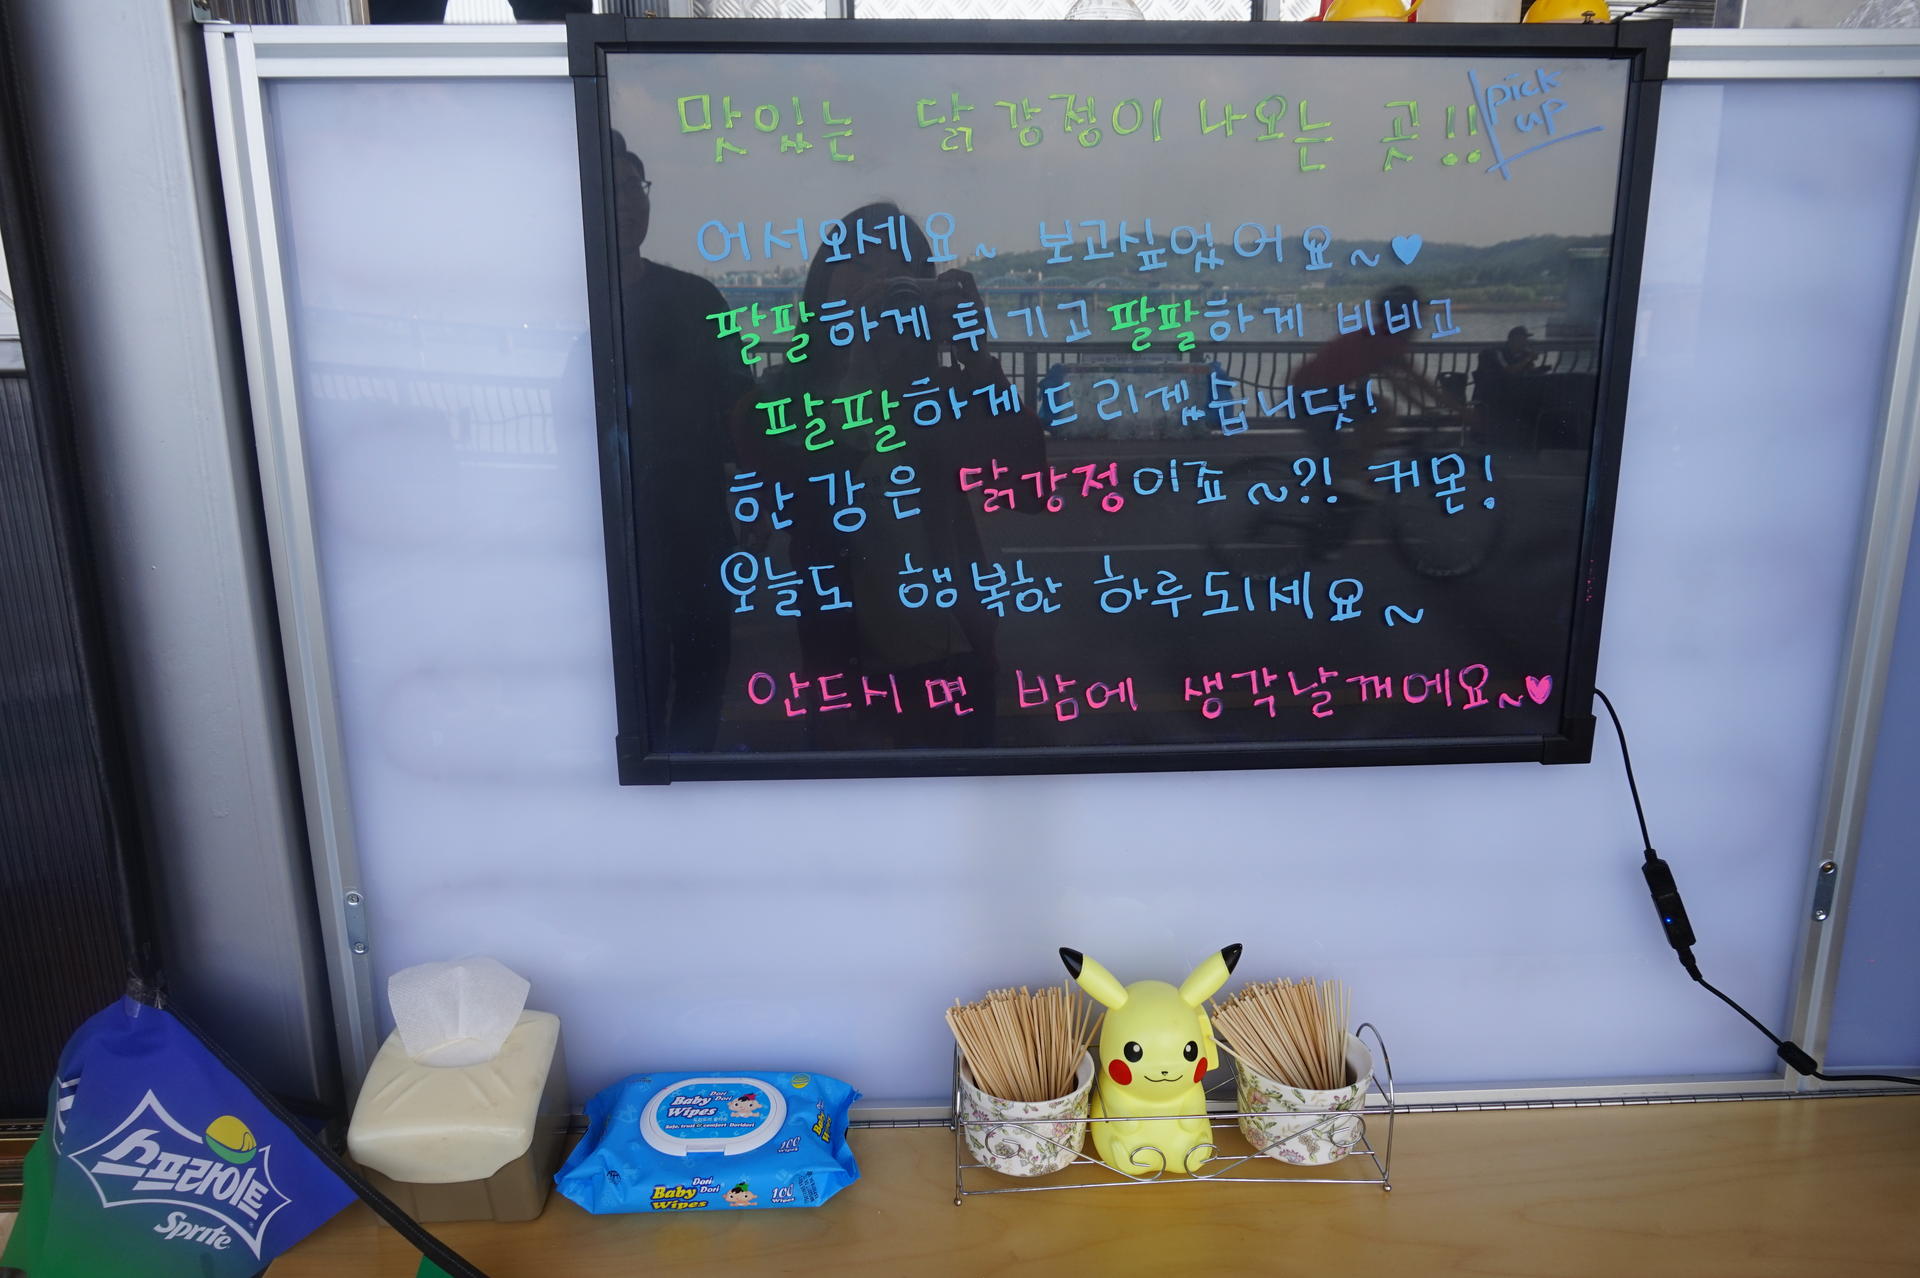 맛있는 닭강정이 나오는 곳!!
pick
up
어서오세요~ 보고싶었어요~♥
팔팔하게 튀기고 팔팔하게 비비고
팔팔하게 드리겠습니닷!
한강은 닭강정이죠~?! 커몬!
오늘도 행복한 하루되세요~
안드시면 밤에 생각날꺼에요~♥
스프라이트
Sprite
Dori Dori
Baby
Wipes
Safe, trust & comfort Doridori
100
Baby
Dori Dori
Baby
Wipes
100
Wipes